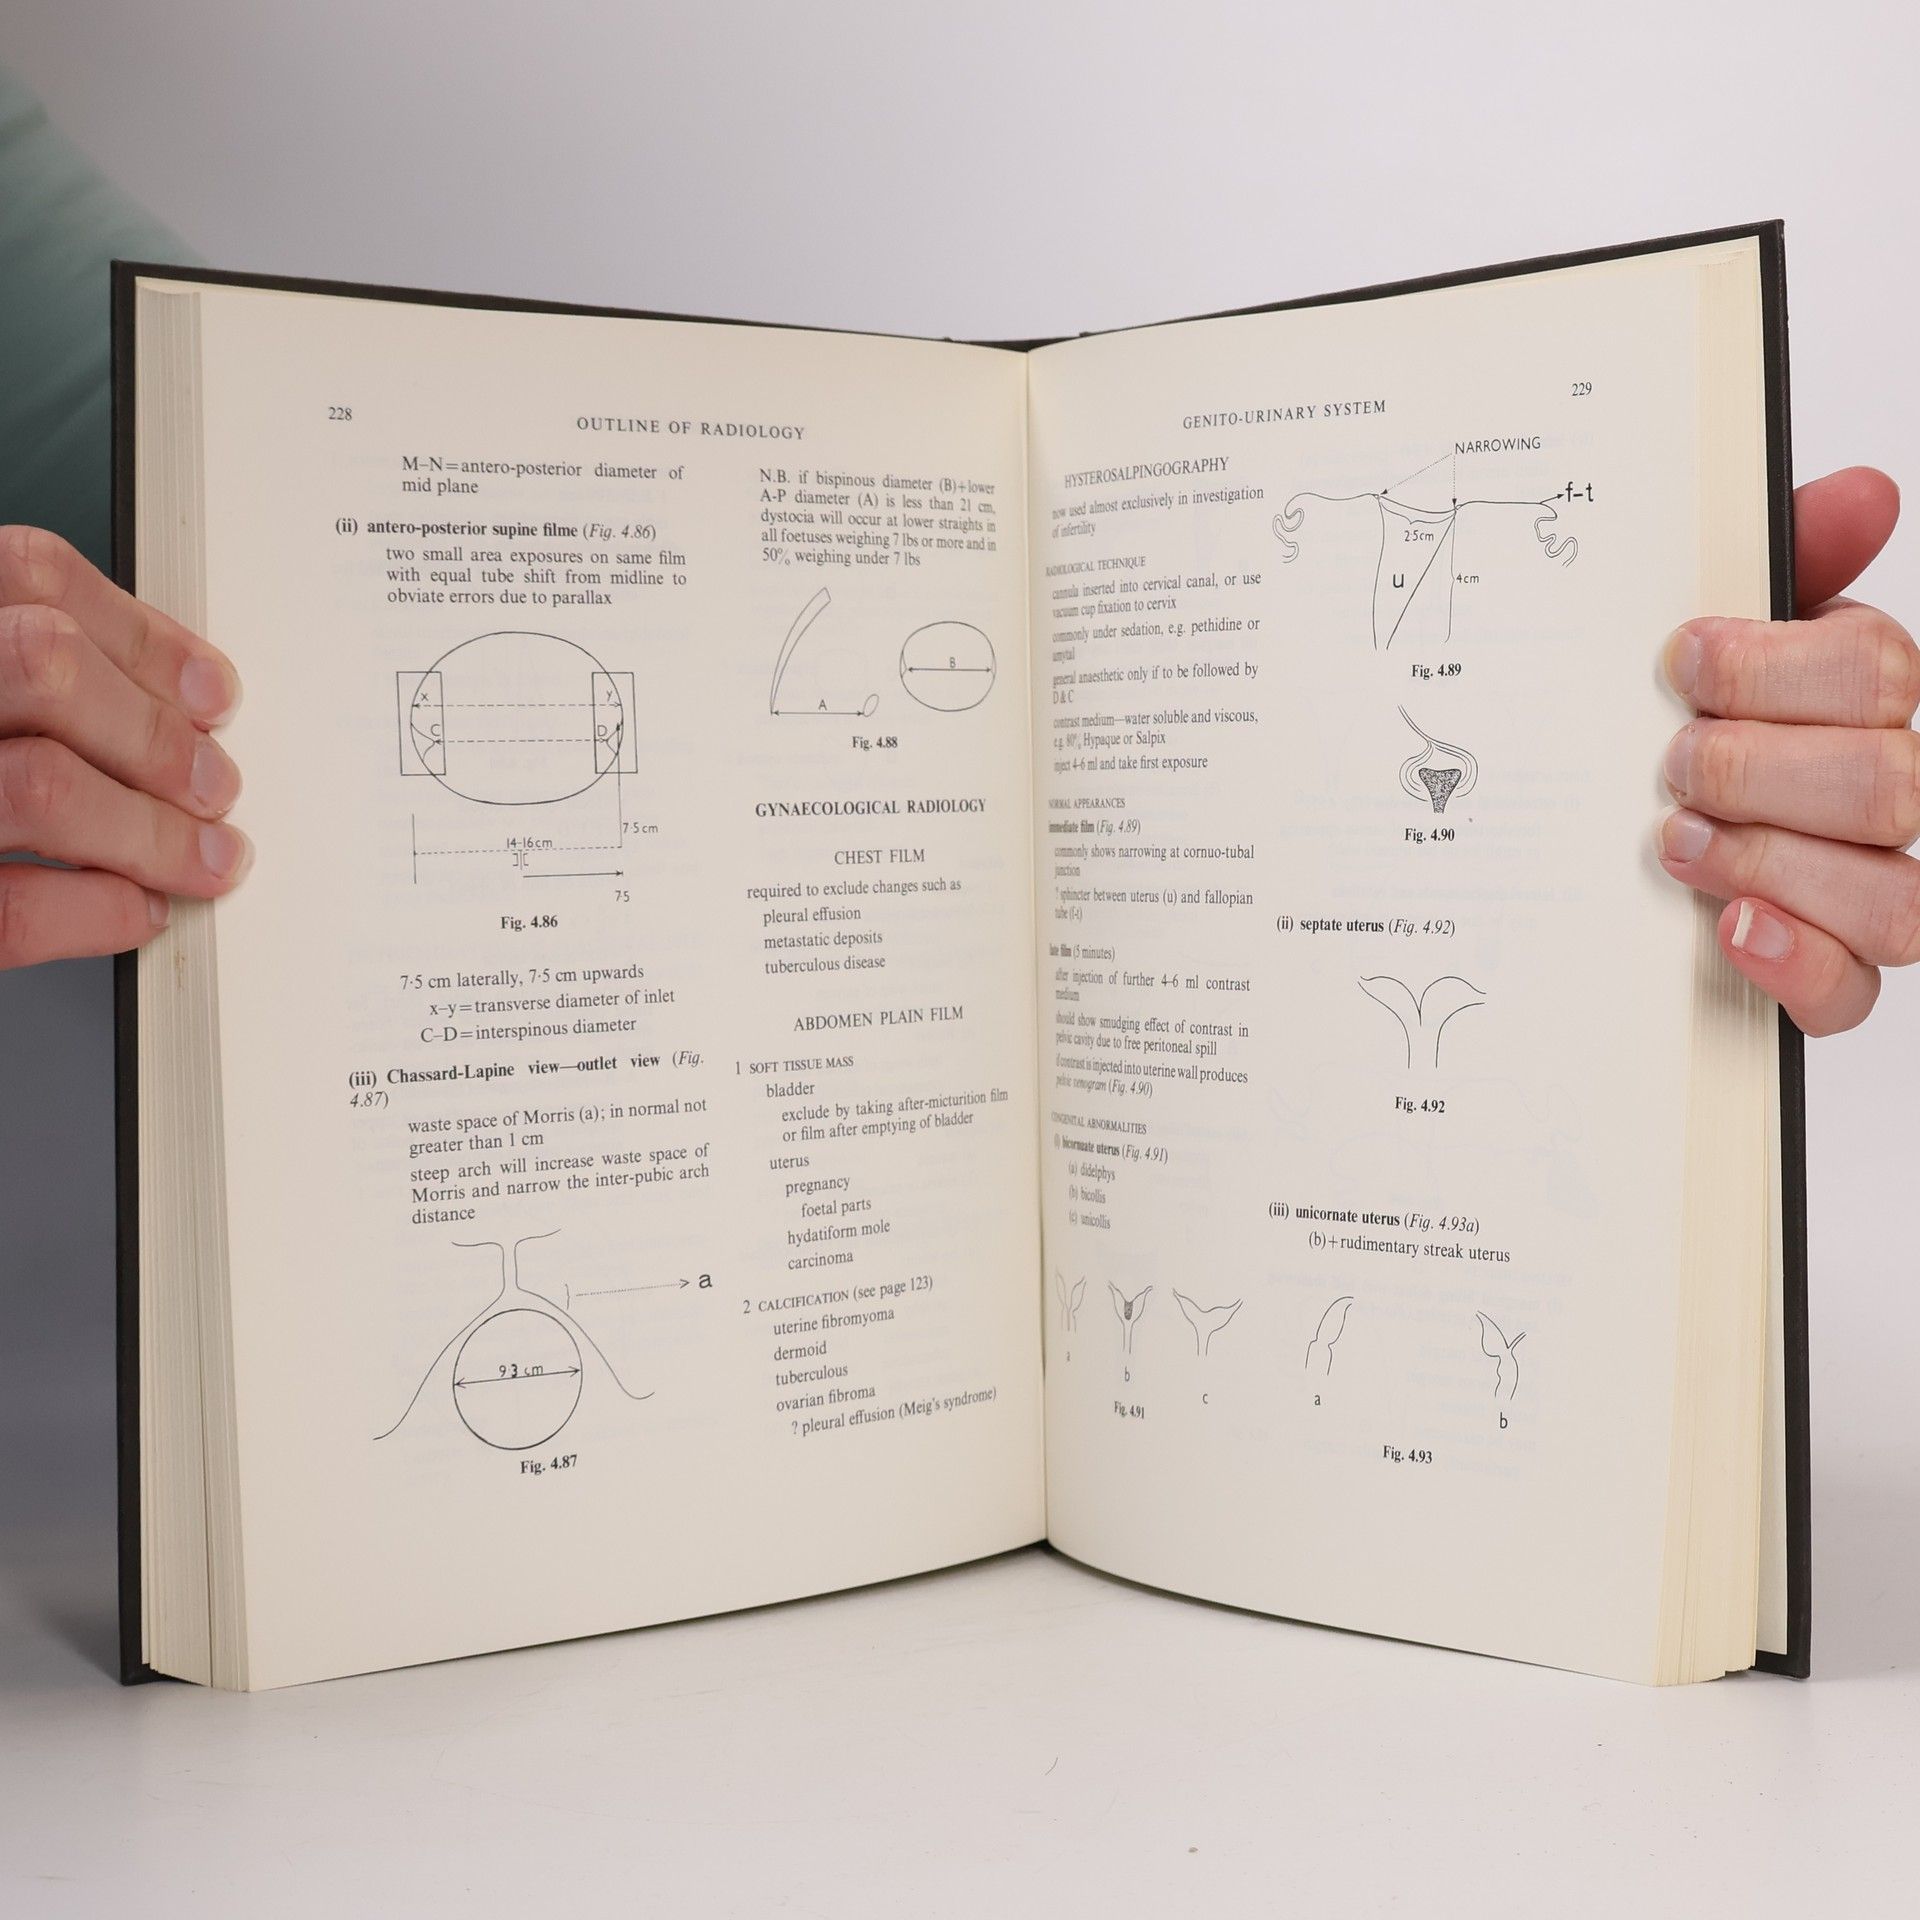 228
OUTLINE OF RADIOLOGY
M–N=antero-posterior diameter of
mid plane
(ii) antero-posterior supine filme (Fig. 4.86)
two small area exposures on same film
with equal tube shift from midline to
obviate errors due to parallax
x y
C D
7·5 cm
14-16cm
7·5
Fig. 4.86
7·5 cm laterally, 7·5 cm upwards
x–y=transverse diameter of inlet
C–D=interspinous diameter
(iii) Chassard-Lapine view—outlet view (Fig.
4.87)
waste space of Morris (a); in normal not
greater than 1 cm
steep arch will increase waste space of
Morris and narrow the inter-pubic arch
distance
a
9·3 cm
Fig. 4.87
N.B. if bispinous diameter (B)+lower
A-P diameter (A) is less than 21 cm,
dystocia will occur at lower straights in
all foetuses weighing 7 lbs or more and in
50% weighing under 7 lbs
A B
Fig. 4.88
GYNAECOLOGICAL RADIOLOGY
CHEST FILM
required to exclude changes such as
pleural effusion
metastatic deposits
tuberculous disease
ABDOMEN PLAIN FILM
1 SOFT TISSUE MASS
bladder
exclude by taking after-micturition film
or film after emptying of bladder
uterus
pregnancy
foetal parts
hydatiform mole
carcinoma
2 CALCIFICATION (see page 123)
uterine fibromyoma
dermoid
tuberculous
ovarian fibroma
? pleural effusion (Meig's syndrome)
GENITO-URINARY SYSTEM
229
HYSTEROSALPINGOGRAPHY
now used almost exclusively in investigation
of infertility
RADIOLOGICAL TECHNIQUE
cannula inserted into cervical canal, or use
vacuum cup fixation to cervix
commonly under sedation, e.g. pethidine or
amytal
general anaesthetic only if to be followed by
D & C
contrast medium—water soluble and viscous,
e.g. 80% Hypaque or Salpix
inject 4-6 ml and take first exposure
NORMAL APPEARANCES
immediate film (Fig. 4.89)
commonly shows narrowing at cornuo-tubal
junction
? sphincter between uterus (u) and fallopian
tube (f-t)
late film (5 minutes)
after injection of further 4–6 ml contrast
medium
should show smudging effect of contrast in
pelvic cavity due to free peritoneal spill
if contrast is injected into uterine wall produces
pelvic venogram (Fig. 4.90)
CONGENITAL ABNORMALITIES
(i) bicornuate uterus (Fig. 4.91)
(a) didelphys
(b) bicollis
(c) unicollis
a
b
c
Fig. 4.91
NARROWING
f-t
2·5cm
u
4cm
Fig. 4.89
Fig. 4.90
(ii) septate uterus (Fig. 4.92)
Fig. 4.92
(iii) unicornate uterus (Fig. 4.93a)
(b)+rudimentary streak uterus
a
b
Fig. 4.93